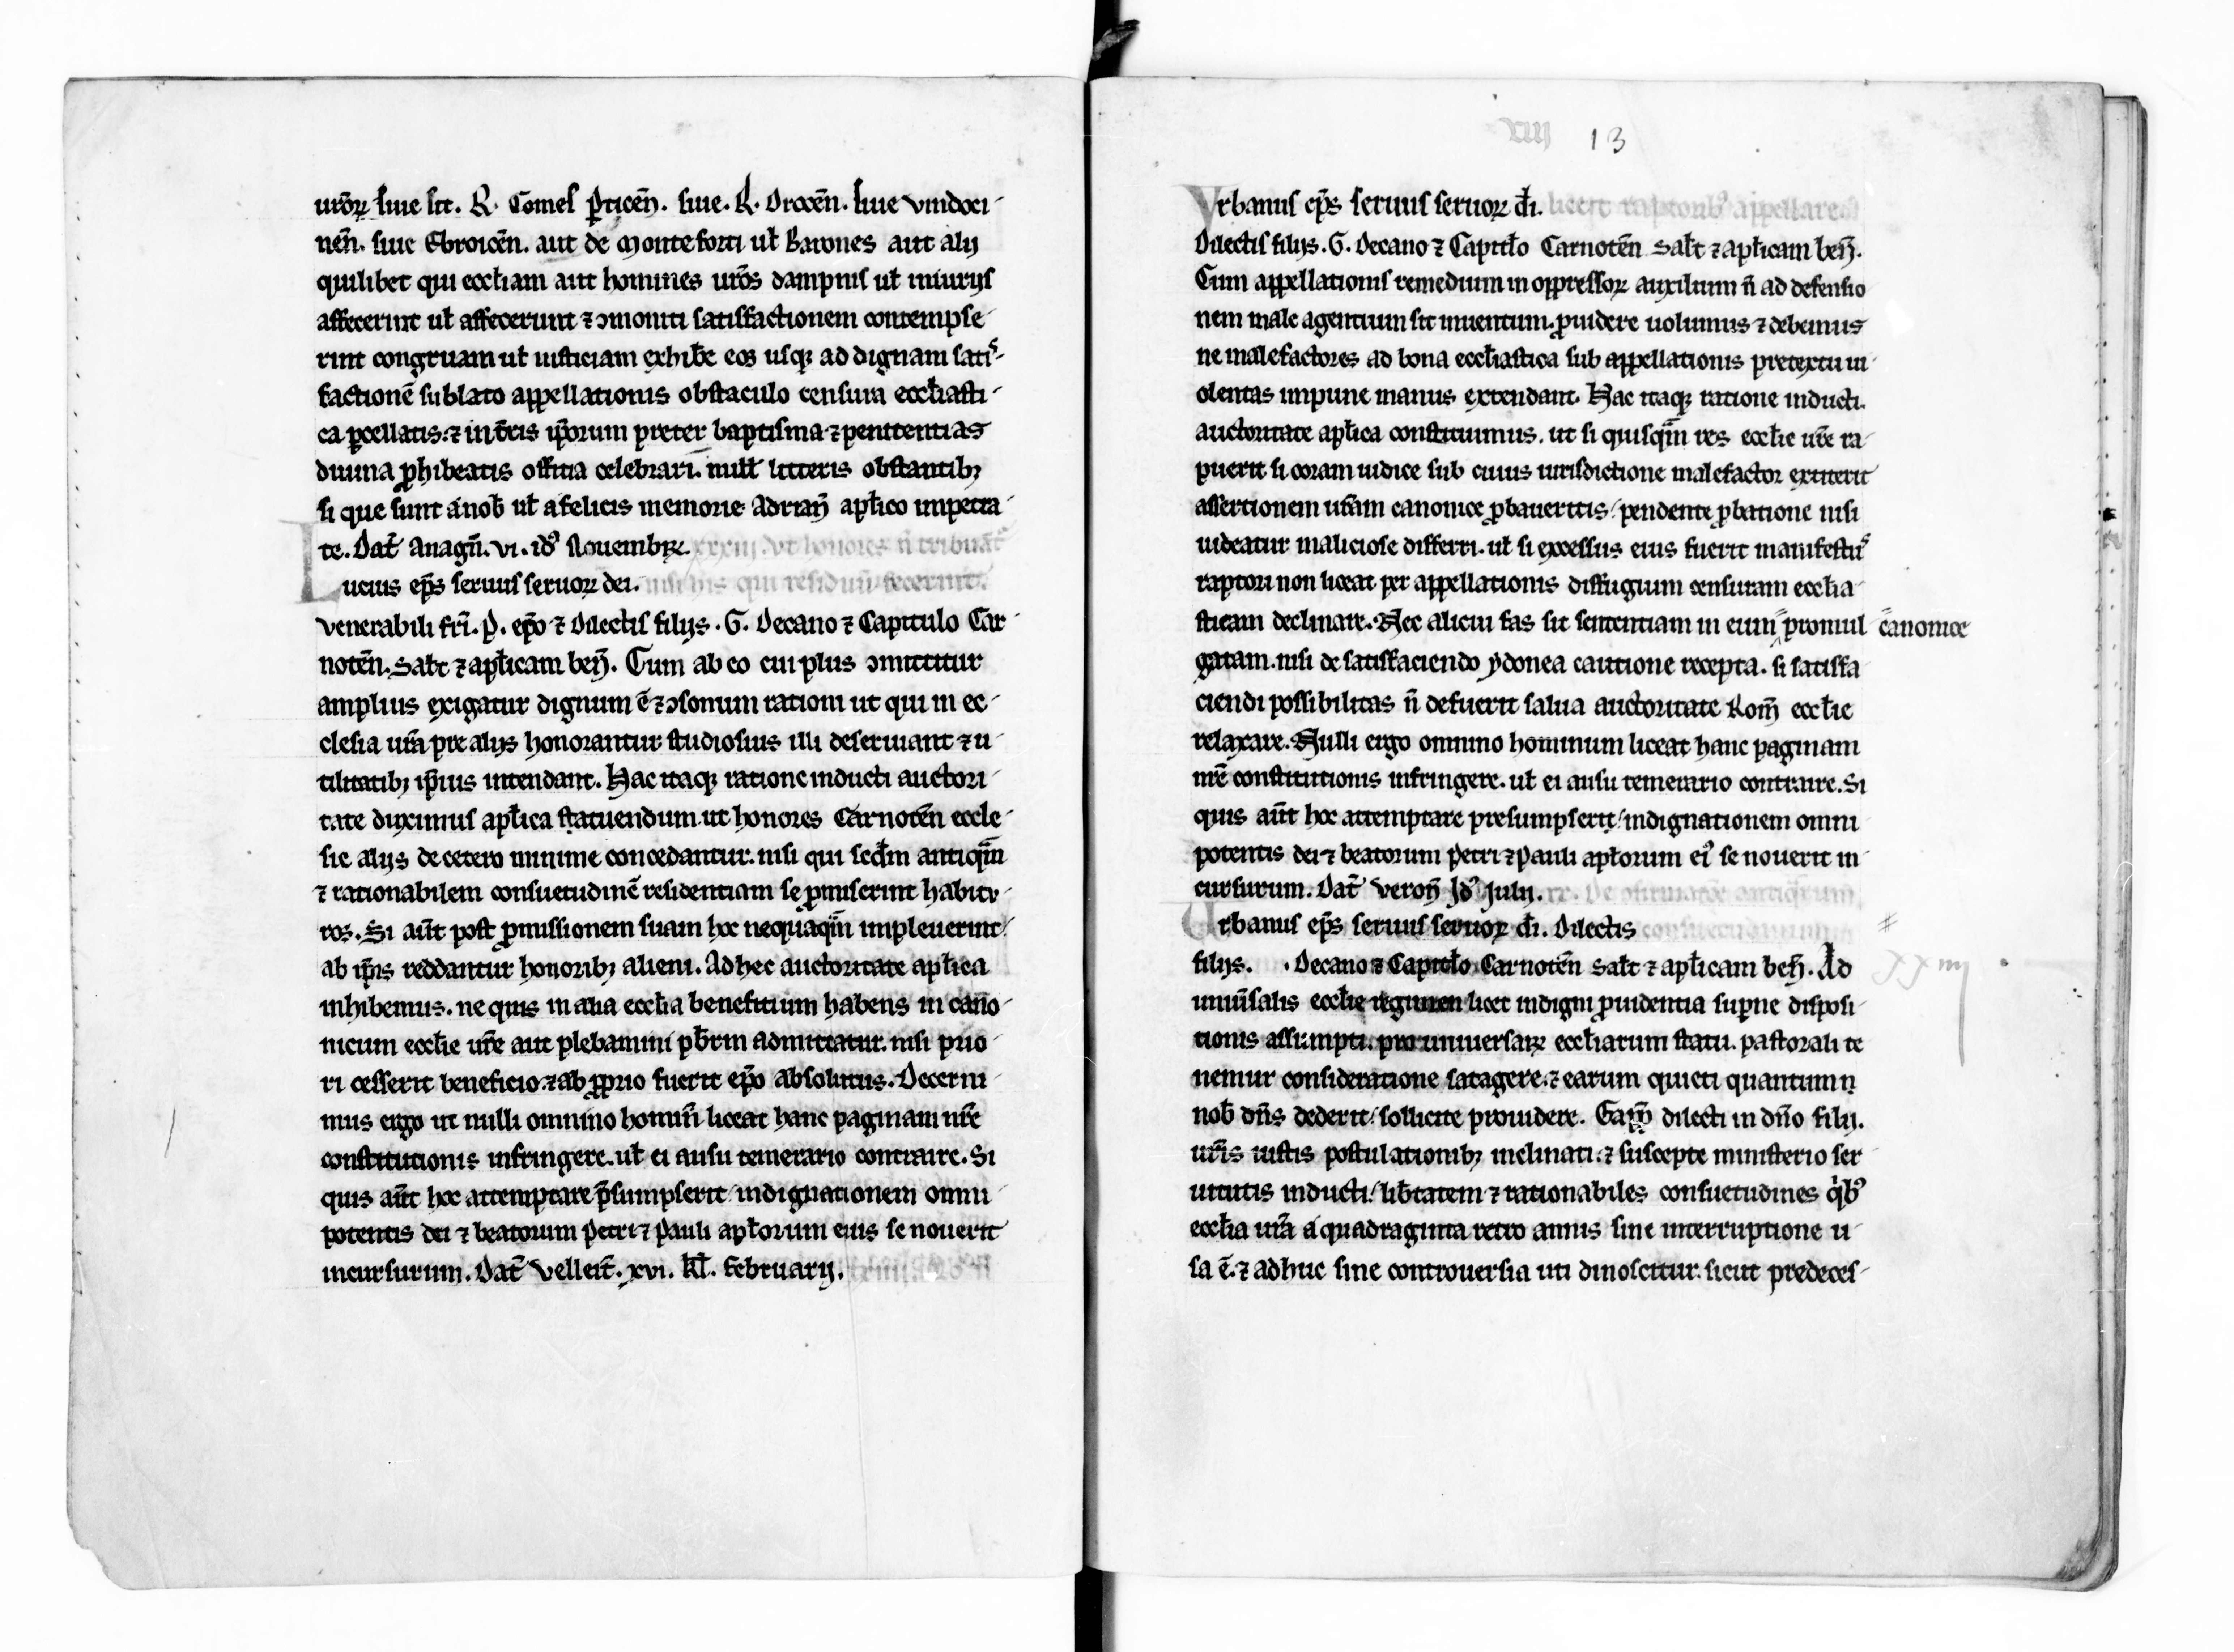 urōꝝ siue sit. R. Comes ꝑticēn. siue. R. Drocēn. siue vindoci-
nēn. siue Ebroicēn. aut de Monteforti ul̄ Barones aut alij
quilibet qui eccl̄iam aut homines urōs dampnis ul̄ iniurijs
affecerint ul̄ affecerunt ⁊ ɔmoniti satisfactionem contempse-
rint congruam ul̄ iusticiam exhibe͞ eos usqꝫ ad dignam satis-
factionē sublato appellationis obstaculo censura eccl̄iasti-
ca ꝑcellatis. ⁊ in t̄ris ip̄orum preter baptisma ⁊ penitentias
diuina ꝓhibeatis offitia celebrari. null̄ litteris obstantibꝫ
si que sunt a nob̄ ul̄ a felicis memorie Adriañ apl̄ico impetra-
te. Dat̄ Anagñ. vi. id᷒ Nouembꝝ. xxxiij. Vt honores ñ tribuāt᷒
Lucius ep̄s seruus seruoꝝ dei. nisi his qui residuū fecerint.
Venerabili fr̄i. P. ep̄o ⁊ Dilectis filijs. G. Decano ⁊ Capitulo Car-
notēn. Salt̄ ⁊ apl̄icam beñ. Cum ab eo cui plus ɔmittitur
amplius exigatur dignum ē ⁊ ɔsonum rationi ut qui in ec-
clesia ur̄a pre alijs honorantur studiosius illi deseruiant ⁊ u-
tilitatibꝫ ip̄ius intendant. Hac itaqꝫ ratione inducti auctori-
tate duximus apl̄ica statuendum ut honores Carnotēn eccle-
sie alijs de cetero minime concedantur. nisi qui scd̄m antiqūm
⁊ rationabilem consuetudinē residentiam se ꝓmiserint habitu-
ros. Si aūt post ꝓmissionem suam hoc nequaquām impleuerint/
ab ip̄is reddantur honoribꝫ alieni. Ad hec auctoritate apl̄ica
inhibemus. ne quis in alia eccl̄ia benefitium habens in cano-
nicum eccl̄ie ur̄e aut plebanini pb̄rm admittatur. nisi prio-
ri cesserit beneficio. ⁊ ab ꝓprio fuerit ep̄o absolutus. Decerni-
mus ergo ut nulli omnino homiñ liceat hanc paginam nr̄e
constitutionis infringere. ul̄ ei ausu temerario contraire. Si
quis aūt hoc attemptare p̄sumpserit/ indignationem omni-
potentis dei ⁊ beatorum Petri ⁊ Pauli apl̄orum eius se nouerit
incursurum. Dat̄ Velleit̄. xvi. kl̄. februarij.
xiij 13
Vrbanus ep̄s seruus seruoꝝ d̄i. liceat raptorib᷒ appellare
Dilectis filijs. G. Decano ⁊ Capitl̄o Carnotēn Salt̄ ⁊ apl̄icam beñ.
Cum appellationis remedium in oppressoꝝ auxilium ñ ad defensio
nem male agentium sit inuentum. ꝓuidere uolumus ⁊ debemus
ne malefactores ad bona eccl̄iastica sub appellationis pretextu ui-
olentas impune manus extendant. Hac itaqꝫ ratione inducti.
auctoritate apl̄ica constituimus. ut si quisqūm res eccl̄ie ur̄e ra-
puerit si coram iudice sub cuius iurisdictione malefactor extiterit
assertionem ur̄am canonice ꝓbaueritis/ pendente ꝓbatione nisi
uideatur maliciose differri. ul̄ si excessus eius fuerit manifestu᷒
raptori non liceat per appellationis diffugium censuram eccl̄ia-
sticam declinare. Nec alicui fas sit sententiam in eum promul canonice
gatam. nisi de satisfaciendo ydonea cautione recepta. si satisfa
ciendi possibilitas ñ defuerit salua auctoritate Rom̄ eccl̄ie
relaxare. Nulli ergo omnino hominum liceat hanc paginam
nr̄e constitutionis infringere. ul̄ ei ausu temerario contraire. Si
quis aūt hoc attemptare presumpserit/ indignationem omni
potentis dei ⁊ beatorum Petri ⁊ Pauli apl̄orum ei᷒ se nouerit in
cursurum. Dat̄ Veroñ Id᷒ Julij. De ɔfirmatōe antiq̄rum
Urbanus ep̄s seruus seruoꝝ d̄i. Dilectis consuetudinum
filijs. . Decano ⁊ Capitl̄o Carnotēn Salt̄ ⁊ apl̄icam beñ. Ad xxiiij
uniūsalis eccl̄ie regimen licet indigni ꝓuidentia suꝑne disposi-
tionis assumpti. pro uniuersaꝝ eccl̄iarum statu. pastorali te
nemur consideratione satagere. ⁊ earum quieti quantum
nob̄ dn̄s dederit/ sollicite prouidere. Eap̄ dilecti in dn̄o filij.
ur̄is iustis postulationibꝫ inclinati. ⁊ suscepte ministerio ser
uitutis inducti/ lib̄tatem ⁊ rationabiles consuetudines q̇b᷒
eccl̄ia ur̄a a quadraginta retro annis sine interruptione u-
sa ē. ⁊ adhuc sine controuersia uti dinoscitur. sicut predeces-